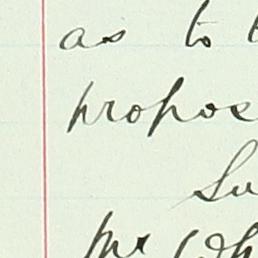 as to
propos
Su
Mr Wh